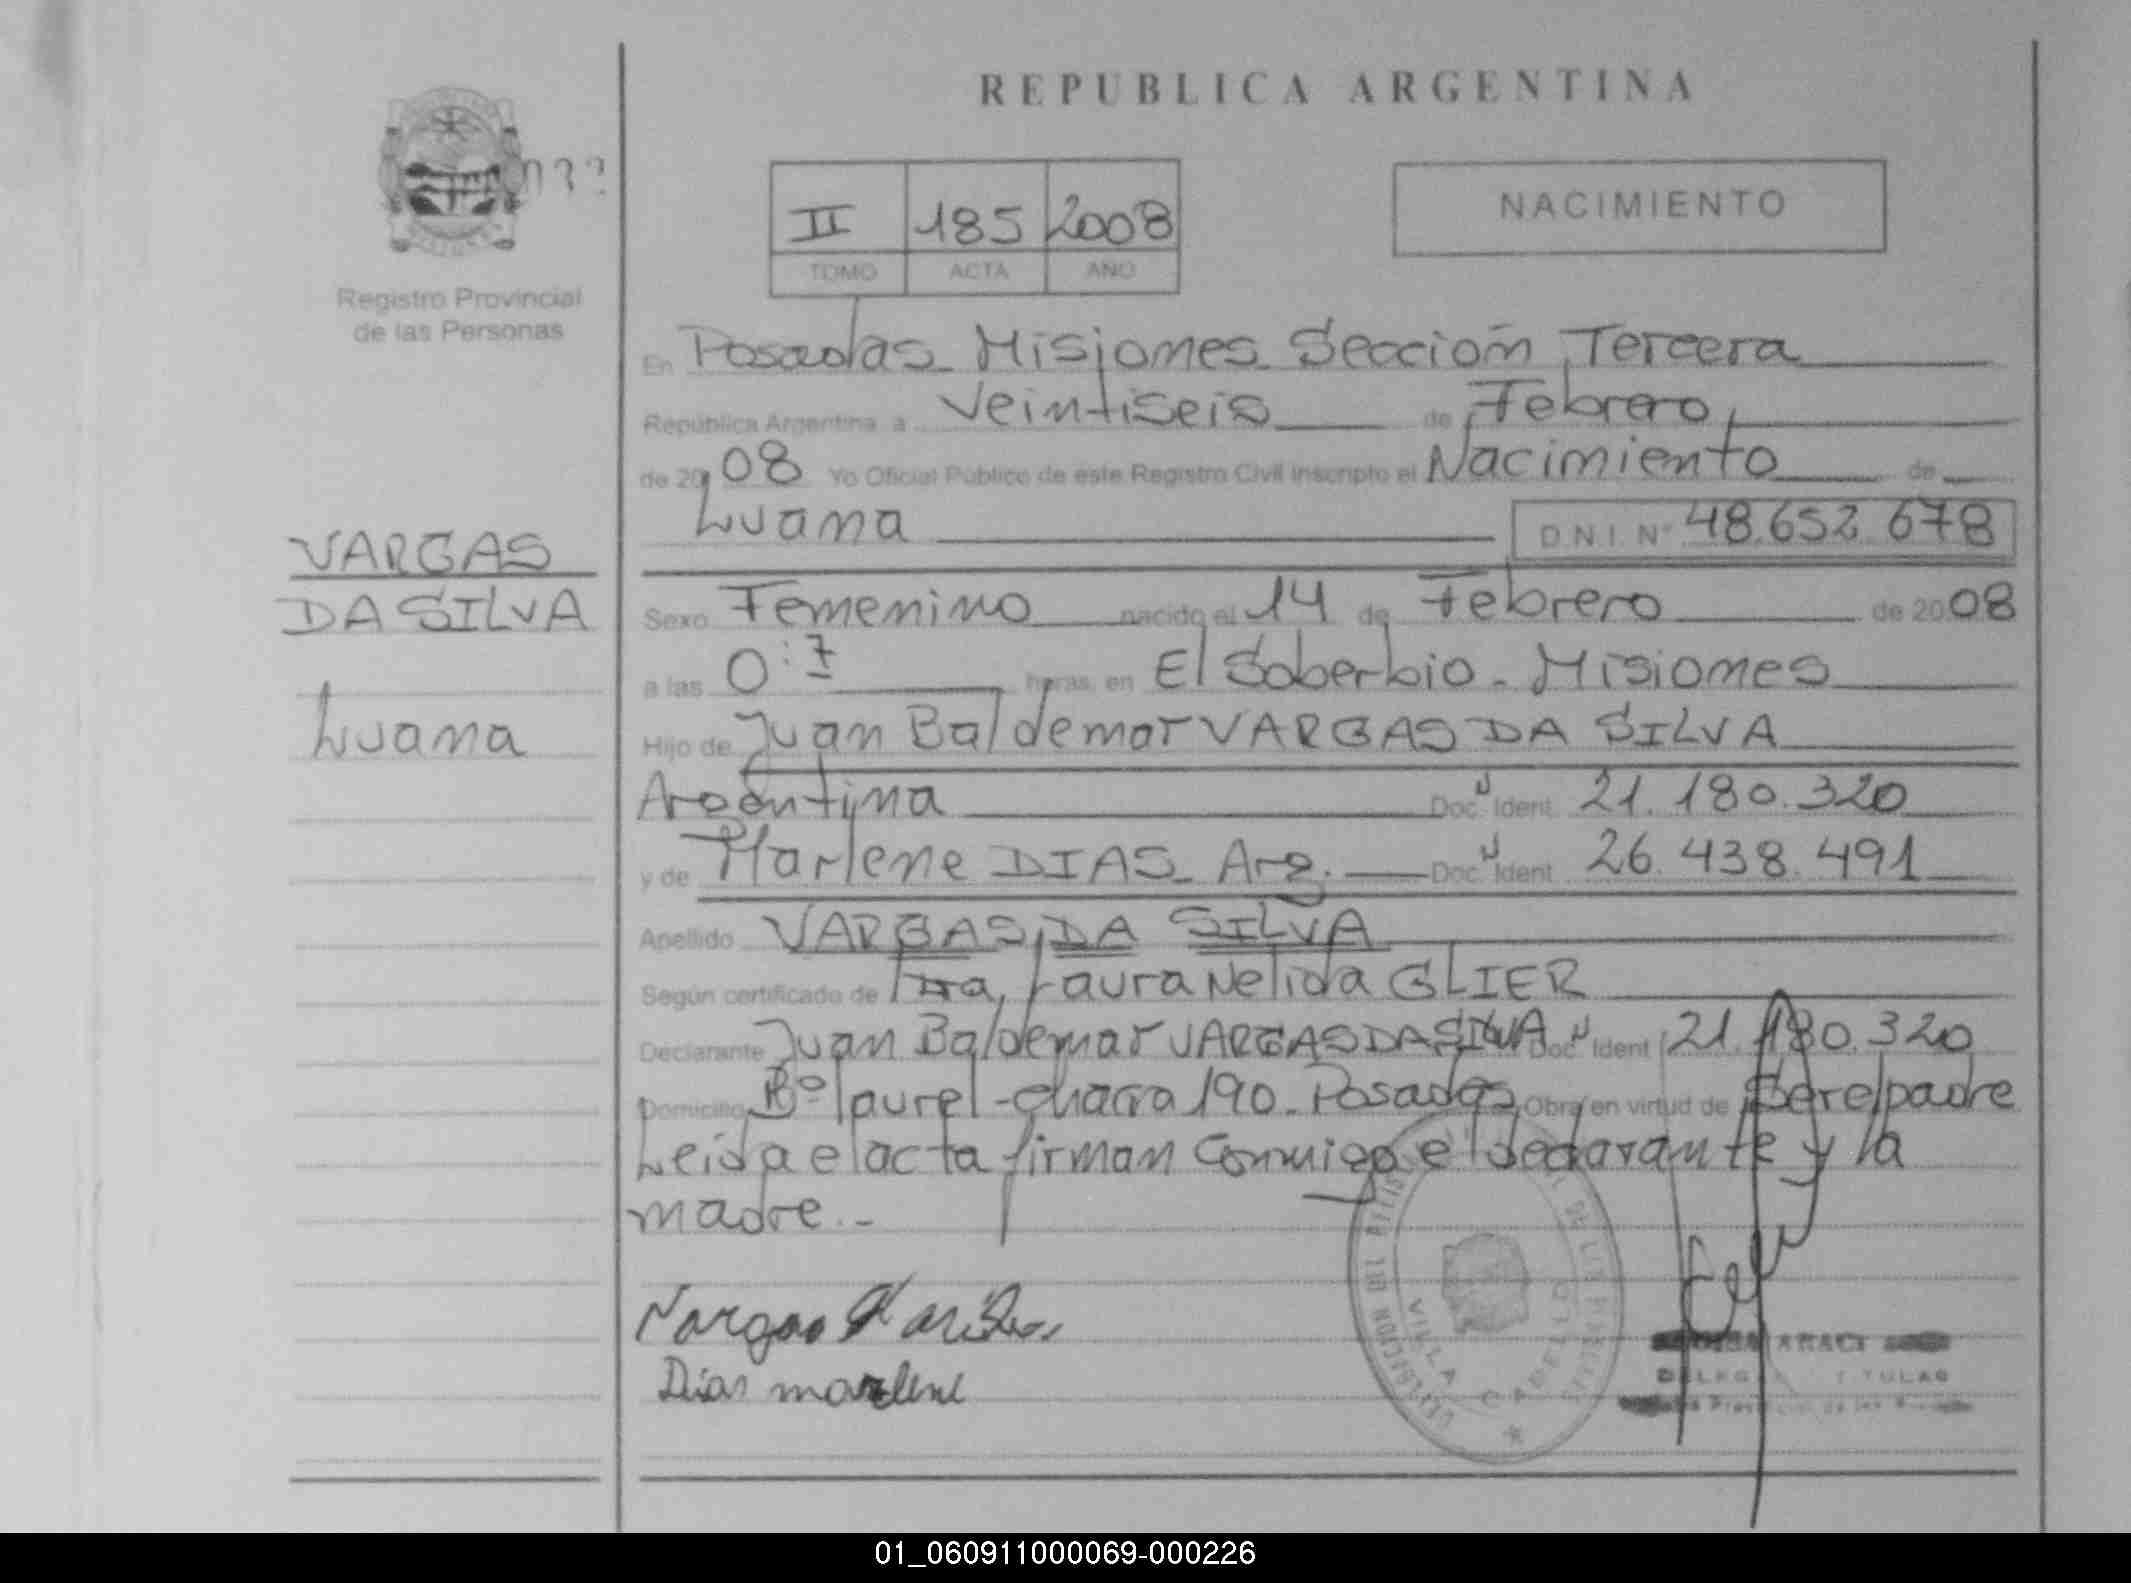 REPUBLICA ARGENTINA
NACIMIENTO
II 185 2008
TOMO ACTA AÑO
Registro Provincial
de las Personas
En Posadas Misiones Sección Tercera
República Argentina a Veintiseis de Febrero
de 2008 Yo Oficial Público de este Registro Civil inscripto el Nacimiento de
Luana D.N.I. Nº 48.652.678
VARGAS
DA SILVA
Luana
Sexo Femenino nacido el 14 de Febrero de 2008
a las 0:7 horas, en El Soberbio - Misiones
Hijo de Juan Baldemar VARGAS DA SILVA
Argentina Doc. Ident. 21.180.320
y de Marlene DIAS - Arg. Doc. Ident. 26.438.491
Apellido VARGAS DA SILVA
Según certificado de Laura Nelida GLIER
Declarante Juan Baldemar VARGAS DA SILVA Doc. Ident 21.180.320
Domicilio Bº laurel - chacra 190 - Posadas Obra en virtud de Ser el padre
Leida el acta firman Conmigo el declarante y la
madre.-
Vargas
Dias marlene
VILLA CABELLO
01_060911000069-000226